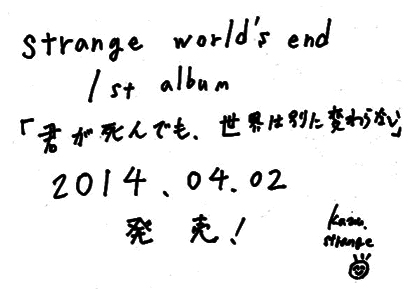 strange world's end
1st album
「君が死んでも、世界は別に変わらない」
2014.04.02
発売！
kazu.
strange